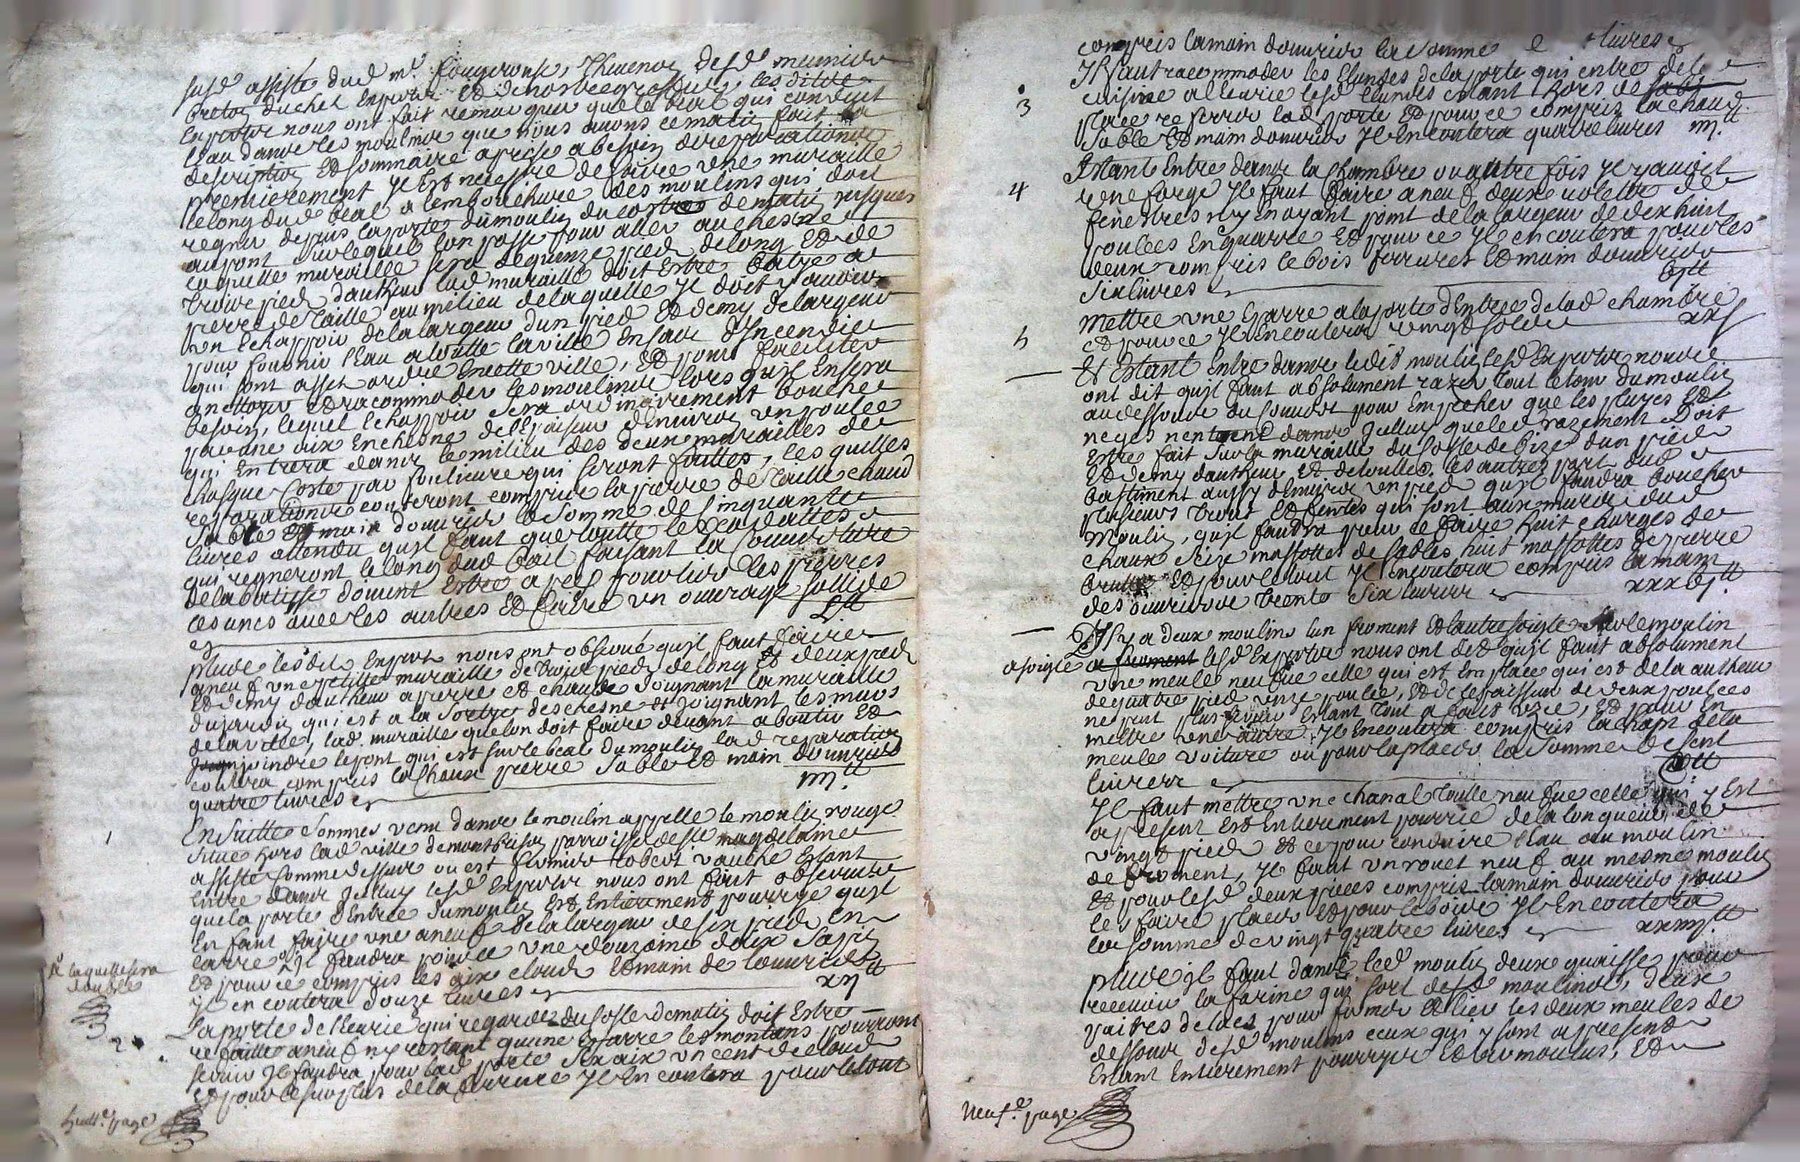 susd assisté dud mr. fougerouse, Thevenon desd meunier
breton duchet Expertz Et de lesd
Expertz nous ont fait remarquer que le béal qui conduit
l'eau dans les moulins que nous avons ce matin fait la
description Et sommaire aprise a besoin de reparations
premierement Il Est necessre de faire une muraille
le long dud béal a lembouchure des moulins qui doit
regner depuis la porte du moulin du costes de matin jusques
au pont sur lequel lon passe pour aller au chesne
laquelle muraille sera de quinze pied de long Et de
trois pied d'autheur lad muraille doit Estre batie a
pierre de taille au milieu de laquelle Il doit y avoir
un Echappoir de la largeur d'un pied Et demy de largeur
pour fournir l'eau a toutte la ville En cas d'Incendie
qui sont asses ordre En cette ville, Et pour faciliter
a nettoyer Et racommoder les moulins lors qu'Il En sera
besoin, lequel Echappoir sera ordinairement bouché
par une aix En chesne de l'Epaisseur d'Environ un poulce
qui Entrera dans le milieu des deux murailles de
chasque Coste par coulieure qui seront faittes, les quelles
reparations couteront compris la pierre de taille chaud
sable Et main d'ouvrier la somme de cinquante
livres attendu qu'Il faut que toutte les
qui regneront le long dud bail faisant la Couverture
de la batisse doivent Estre a pour lier les pierres
les unes avec les autres Et faire un ouvrage sollide
L tt
Plus les dit Expert nous ont observé qu'Il faut faire
a neuf une petitte muraille de trois pied de long Et deux pied
Et demy d'autheur a pierre et chaud Joignant la muraille
du jardin qui est a la sortie des chesne et joignant les murs
de la ville, lad. muraille que lon doit faire devant aboutir Et
joindre le pont qui est sur le béal du moulin lad reparation
coutera compris la Chaux pierre sable Et main d'ouvrier
quatre livres IIII tt.
1
Ensuitte sommes venu dans le moulin appellé le moulin rouge
situé hors lad ville de montbrison parroisse de ste magdelaine
assisté comme dessus ou est fermier robert vauche Estant
Entré dans Icelluy lesd Expertz nous ont fait observer
que la porte d'Entrée du moulin Est Entierement pourrye qu'Il
En faut faire une a neuf de la largeur de six pied En
carré Il faudra pour ce une douzaine d'aix sappin
Et pour ce compris les aix cloud Et main de l'ouvrier
Il en coutera douze livres XII tt
laquelle sera
double
2
La porte de l'Ecurie qui regarde du Coste de matin doit Estre
refaitte a neuf n'y restant qu'une Esparre les montans pourront
servir Il faudra pour lad porte six aix un cent de cloud
Et pour le surplus de la ferrure Il En coutera pour le tout
huitt.e page
compris la main d'ouvrier la somme de livres
3
Il faut raccommoder les Elundes de la porte qui entre de la
cuisine a l'ecurie lesd Elundes Estant hors de
place referrer lad porte Et pour ce compris la chaud
sable Et main d'ouvrier Il En coutera quatre livres IIII tt
4
Estant Entré dans la chambre ou autre fois Il y avoit
une forge Il faut faire a neuf deux volets de
fenestres n'y En ayant point de la largeur de dix huit
poulces En quarré Et pour ce Il En coutera pour les
deux compris le bois ferrures Et main d'ouvrier
six livres VI tt
5
mettre une Eparre a la porte d'Entrée de lad chambre
Et pour ce Il En coutera vingt solds XX s
Et Estant Entré dans ledit moulin lesd Expertz nous
ont dit qu'Il faut absolument razer tout le tour du moulin
au dessous du couvert pour Empecher que les pluyes Et
neges n'entrent dans Icelluy que led razement doit
Estre fait sur la muraille du Coste de bize d'un pied
Et demy d'autheur Et de touttes les autres part dud
bastiment aussy d'Environ un pied qu'Il faudra boucher
plusieurs trous Et fentes qui sont aux murs dud
Moulin, qu'Il faudra pour ce faire huit charges de
chaux seize massottes de sables huit massottes de pierre
brutte Et pour le tout Il En coutera compris la main
des ouvriers trente six livres XXXVI tt
Il y a deux moulin l'un froment Et l'autre soigle sur le moulin
a soigle
a froment lesd Expertz nous ont dit qu'Il faut absolument
une meule neufve celle qui est En place qui est de la autheur
de quatre pied unze poulce, Et de l'efaisseur de deux poulces
ne peut plus servir Estant tout a fait usée, Et pour En
mettre une autre Il En coutera compris la de la
meule voiture ou pour la placer la somme de Cent
livres C tt
Il faut mettre une chanal toutte neufve celle qui y Est
a present Est Entierement pourrie de la longueur de
vingt pied Et ce pour conduire l'eau au moulin
de froment, Il faut un rouet neuf au mesme moulin
Et pour lesd deux pieces compris la main d'ouvrier pour
les faire placer Et pour le bois Il En coutera
la somme de vingt quatre livres XXIIII tt.
Plus Il faut dans led moulin deux quaisse pour
recevoir la farine qui sort desd moulins, deux
paires de pour fermer Et lier les deux meules de
dessous desd moulins ceux qui y sont a present
Estant Entierement pourrye Et vermoulus, Et
Neuf.e page